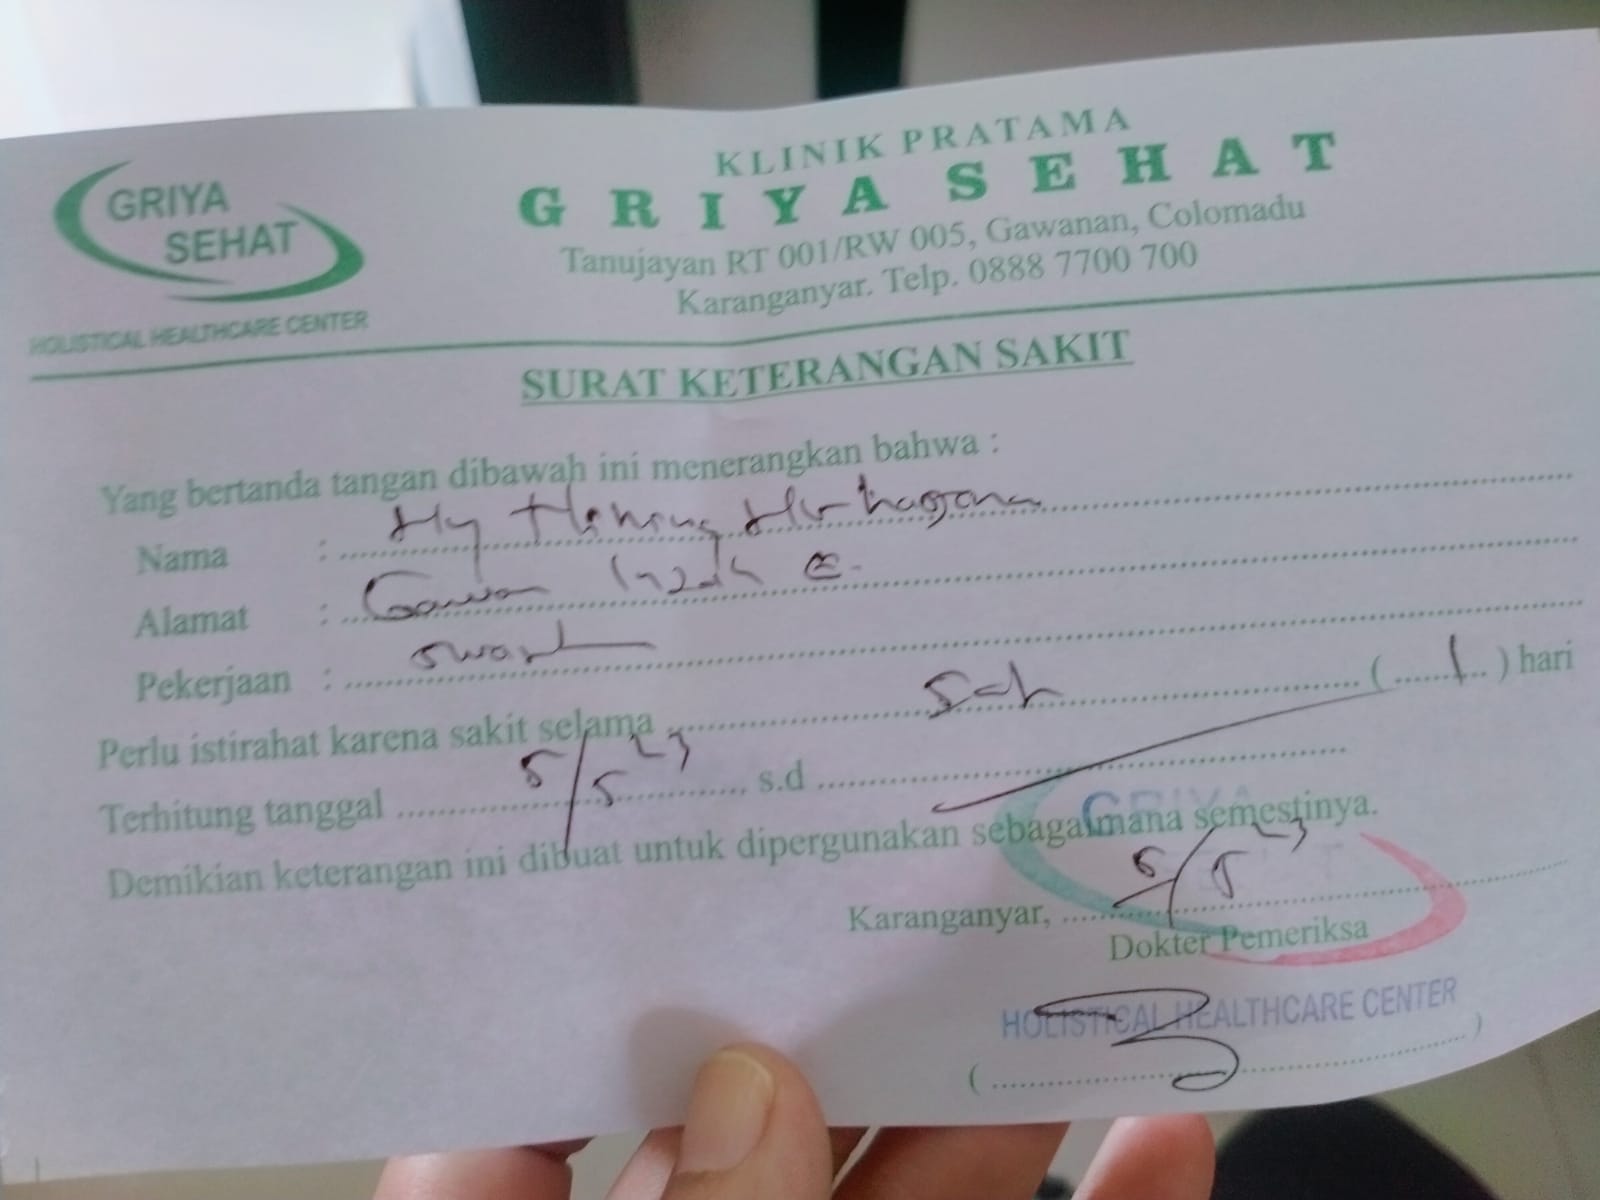 KLINIK PRATAMA
GRIYA SEHAT
GRIYA
SEHAT
HOLISTICAL HEALTHCARE CENTER
Tanujayan RT 001/RW 005, Gawanan, Colomadu
Karanganyar. Telp. 0888 7700 700
SURAT KETERANGAN SAKIT
Yang bertanda tangan dibawah ini menerangkan bahwa :
Nama :
Alamat :
Pekerjaan :
Perlu istirahat karena sakit selama (1) hari
Terhitung tanggal 5/5 23 s.d
Demikian keterangan ini dibuat untuk dipergunakan sebagaimana semestinya.
Karanganyar, 5/5 23
Dokter Pemeriksa
HOLISTICAL HEALTHCARE CENTER